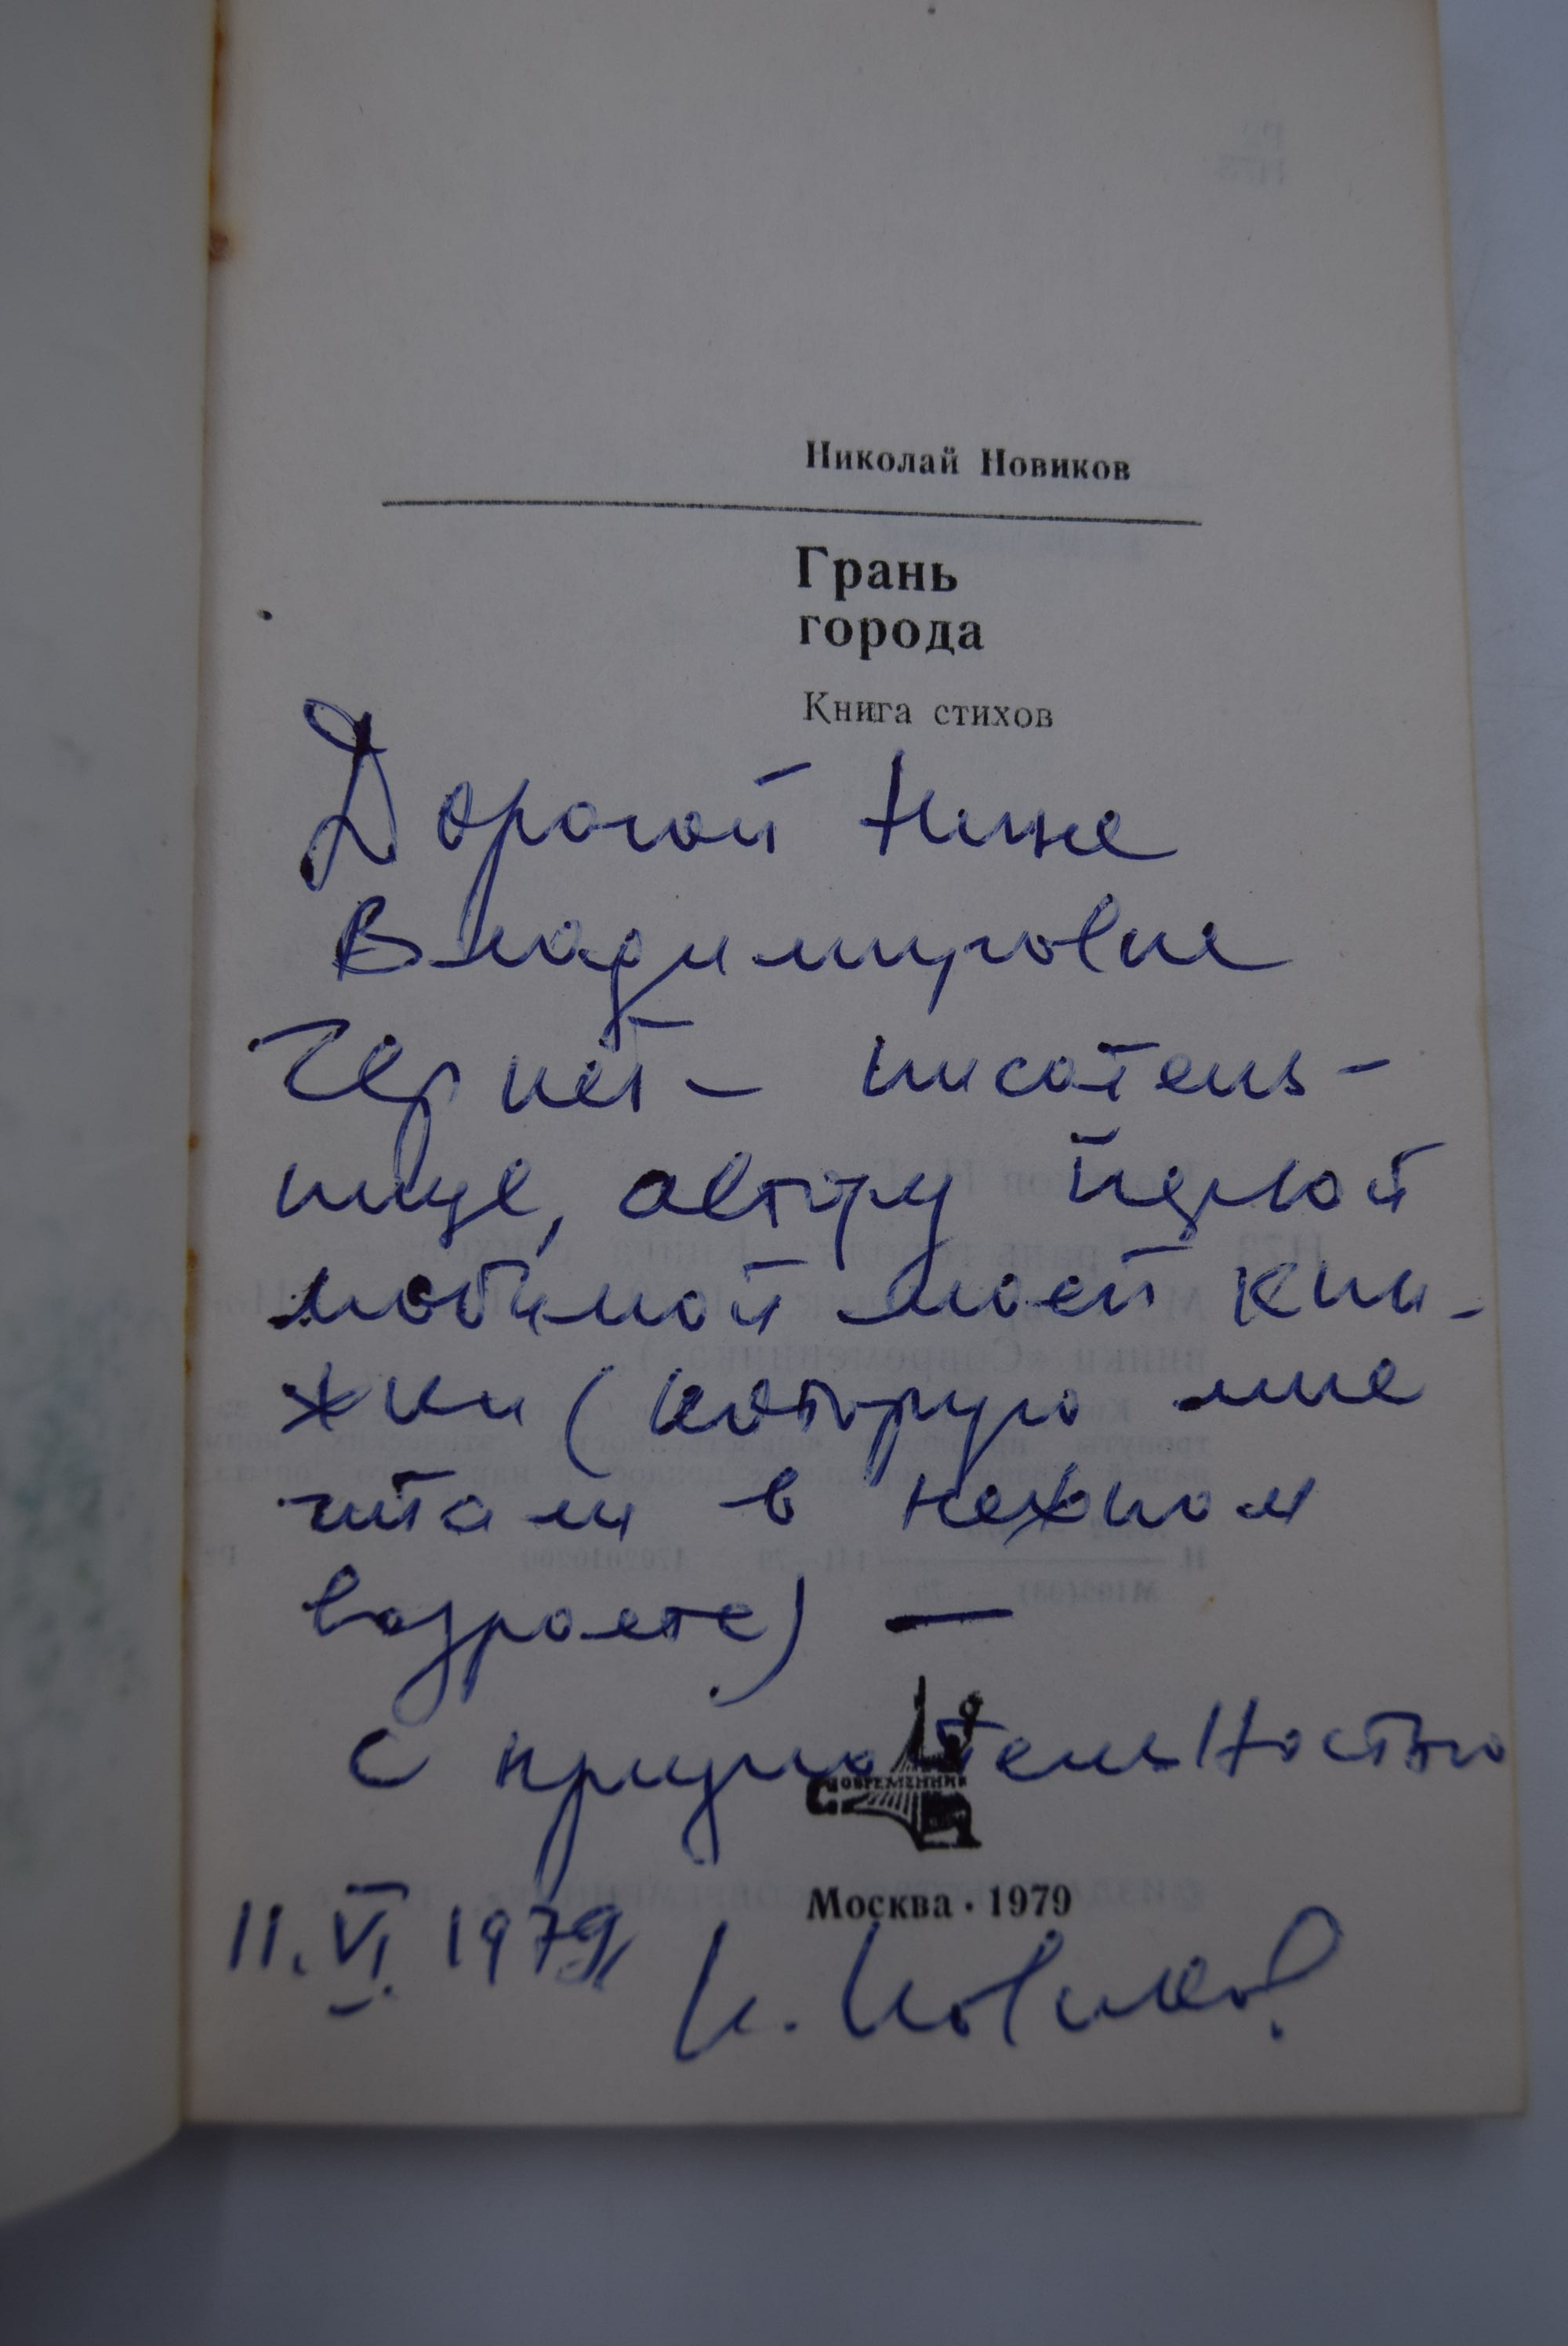 Николай Новиков
Грань
города
Книга стихов
Дорогой Нине
Владимировне
Чернет- писатель-
нице, автору первой
любимой моей кни-
жки (которую мне
читали в нежном
возрасте) —
с признательностью
СОВРЕМЕННИК
Москва · 1979
11. VI. 1979
Н. Новиков